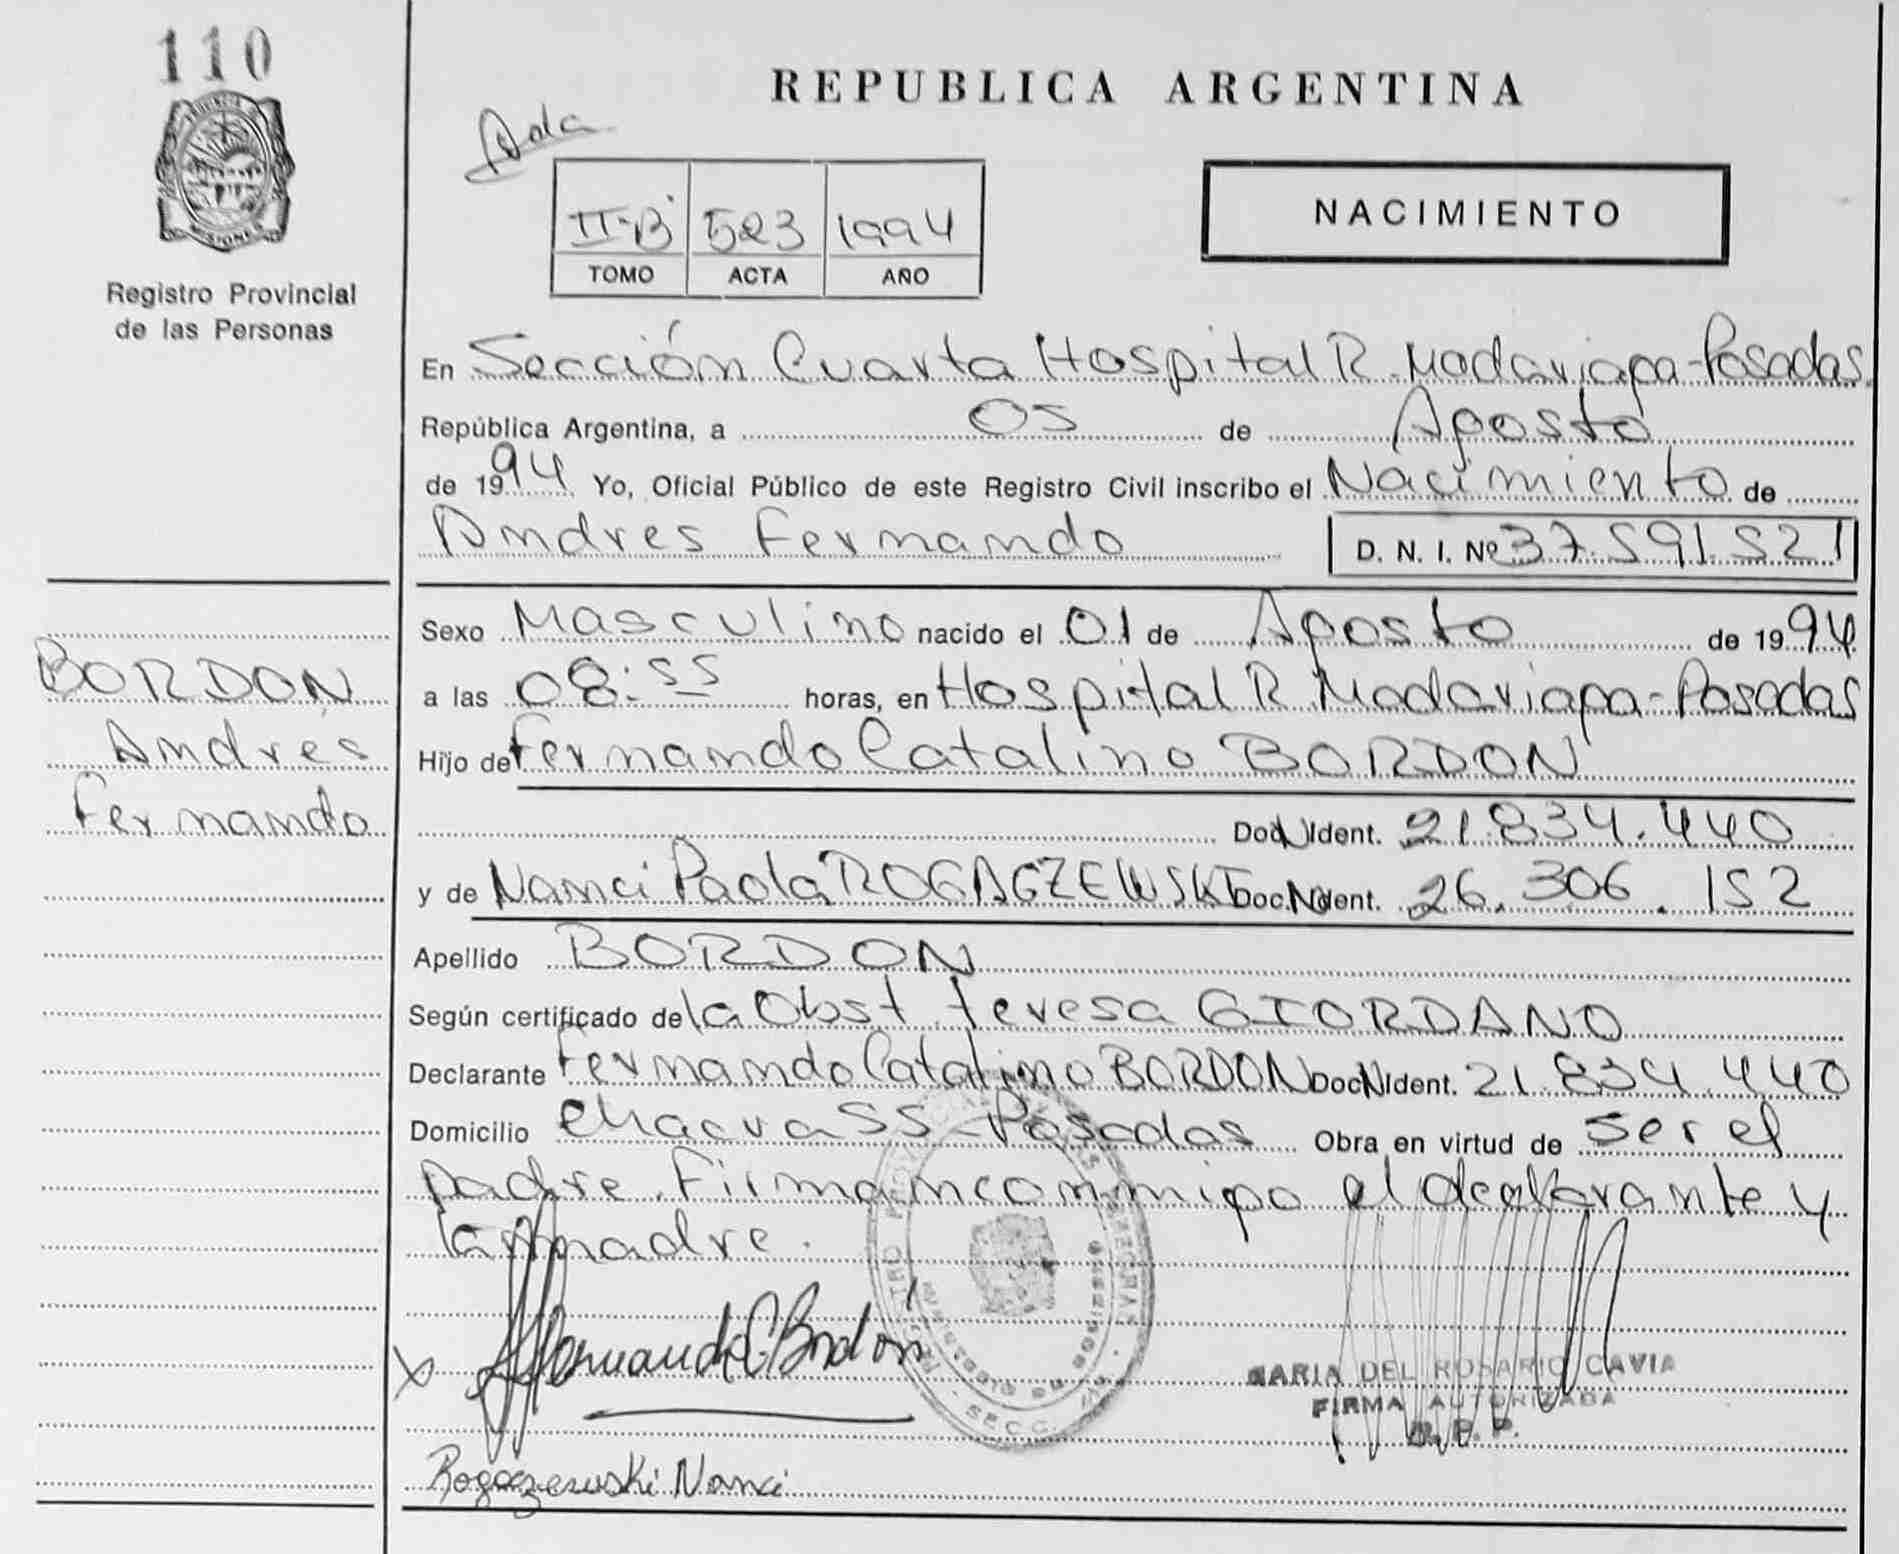 110
REPUBLICA ARGENTINA
II-B 523 1994
TOMO ACTA AÑO
NACIMIENTO
Registro Provincial
de las Personas
En Sección Cuarta Hospital R. Madariaga-Posadas.
República Argentina, a 05 de Agosto
de 1994 Yo, Oficial Público de este Registro Civil inscribo el Nacimiento de
Andres Fernando D. N. I. Nº 37.591.521
Sexo Masculino nacido el 01 de Agosto de 1994
a las 08:55 horas, en Hospital R. Madariaga-Posadas
Hijo de Fernando Catalino BORDON
Doc.N.Ident. 21.834.440
y de Nanci Paola ROGACZEWSKI Doc.N.Ident. 26.306.152
Apellido BORDON
Según certificado de la Obst. Teresa GIORDANO
Declarante Fernando Catalino BORDON Doc.N.Ident. 21.834.440
Domicilio Chacra 55-Posadas Obra en virtud de ser el
padre. Firman conmigo el declarante y
la madre.
BORDON
Andrés
Fernando
Fernando C. Bordón
MARIA DEL ROSARIO CAVIA
FIRMA AUTORIZADA
R. P. P.
Rogaczewski Nanci